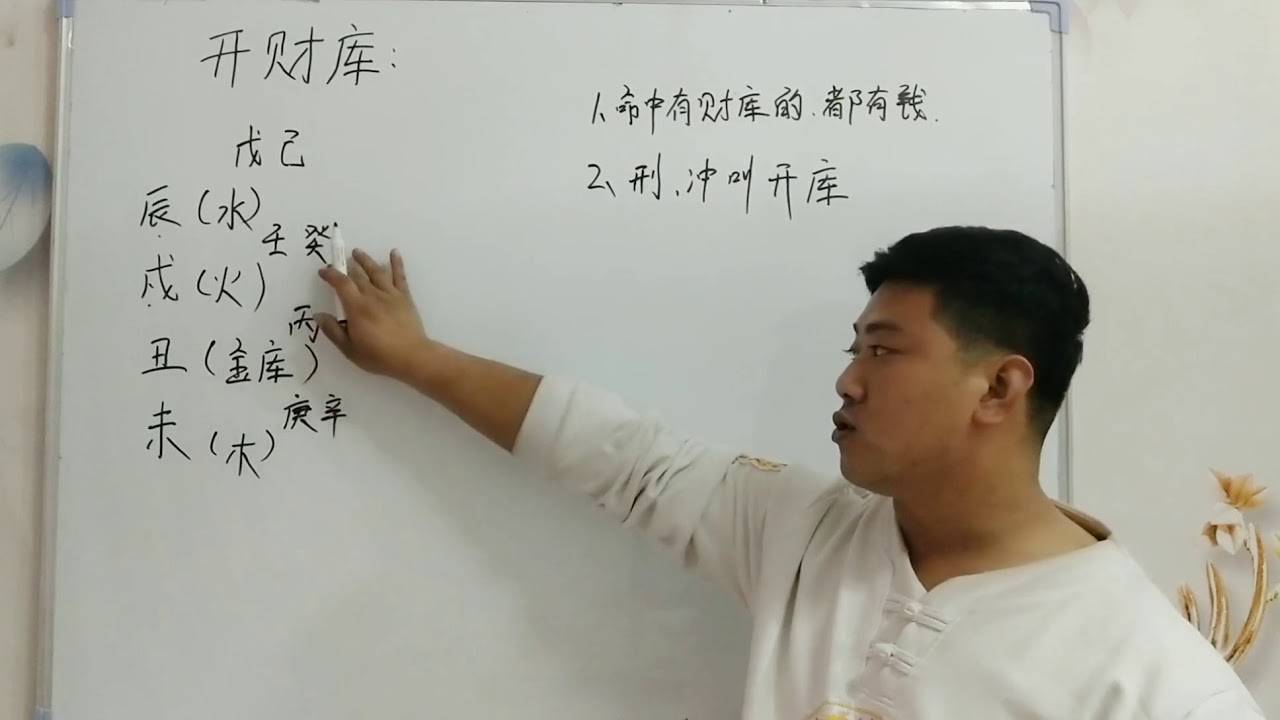 开财库：
戊己
辰（水）
壬癸
戌（火）
丙
丑（金库）
庚辛
未（木）
1、命中有财库的、都有钱.
2、刑、冲叫开库